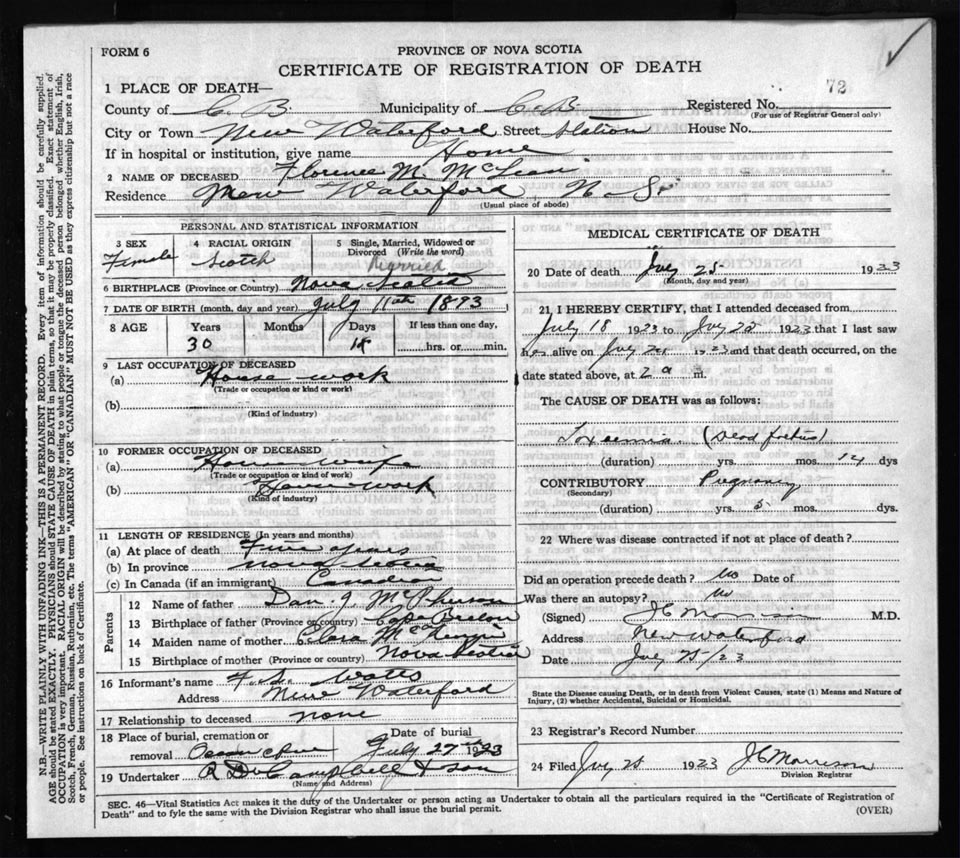 FORM 6
PROVINCE OF NOVA SCOTIA
CERTIFICATE OF REGISTRATION OF DEATH
72
1 PLACE OF DEATH—
County of C. B. Municipality of C. B. Registered No.
(For use of Registrar General only)
City or Town New Waterford Street Station House No.
If in hospital or institution, give name Home
2 NAME OF DECEASED Florence M. McLean
Residence New Waterford N. S.
(Usual place of abode)
PERSONAL AND STATISTICAL INFORMATION
3 SEX 4 RACIAL ORIGIN 5 Single, Married, Widowed or Divorced (Write the word)
Female Scotch Married
6 BIRTHPLACE (Province or Country) Nova Scotia
7 DATE OF BIRTH (month, day and year) July 11th 1893
8 AGE Years Months Days If less than one day,
30 14 hrs. or min.
9 LAST OCCUPATION OF DECEASED
(a) House work
(Trade or occupation or kind of work)
(b)
(Kind of industry)
10 FORMER OCCUPATION OF DECEASED
(a) Housewife
(Trade or occupation or kind of work)
(b) House work
(Kind of industry)
11 LENGTH OF RESIDENCE (In years and months)
(a) At place of death Five years
(b) In province Nova Scotia
(c) In Canada (if an immigrant) Canadian
Parents
12 Name of father Dan. J. McPherson
13 Birthplace of father (Province or country) Cape Breton
14 Maiden name of mother Clara McKenzie
15 Birthplace of mother (Province or country) Nova Scotia
16 Informant's name Watts
Address New Waterford
17 Relationship to deceased none
18 Place of burial, cremation or removal Date of burial
July 27th 1923
19 Undertaker Campbell & son
(Name and Address)
MEDICAL CERTIFICATE OF DEATH
20 Date of death July 25 1923
(Month, day and year)
21 I HEREBY CERTIFY, that I attended deceased from
July 18 1923 to July 25 1923 that I last saw
her alive on July 24 1923 and that death occurred, on the
date stated above, at 2 a m.
The CAUSE OF DEATH was as follows:
Toxemia. (Dead foetus)
(duration) yrs. mos. 14 dys
CONTRIBUTORY Pregnancy
(Secondary)
(duration) yrs. 5 mos. dys.
22 Where was disease contracted if not at place of death?
Did an operation precede death? No Date of
Was there an autopsy? No
(Signed) J C Morrison M.D.
Address New Waterford
Date July 25/23
State the Disease causing Death, or in death from Violent Causes, state (1) Means and Nature of
Injury, (2) whether Accidental, Suicidal or Homicidal.
23 Registrar's Record Number
24 Filed July 28 1923 J C Morrison
Division Registrar
SEC. 46—Vital Statistics Act makes it the duty of the Undertaker or person acting as Undertaker to obtain all the particulars required in the "Certificate of Registration of
Death" and to fyle the same with the Division Registrar who shall issue the burial permit.
(OVER)
N.B.—WRITE PLAINLY WITH UNFADING INK—THIS IS A PERMANENT RECORD. Every item of information should be carefully supplied.
AGE should be stated EXACTLY. PHYSICIANS should STATE CAUSE OF DEATH in plain terms, so that it may be properly classified. Exact statement of
OCCUPATION is very important. RACIAL ORIGIN will be described by stating to what people or tongue the deceased person belonged whether English, Irish,
Scotch, French, German, Russian, Ruthenian, etc. The terms "AMERICAN" OR "CANADIAN" MUST NOT BE USED as they express citizenship but not a race
or people. See instructions on back of Certificate.